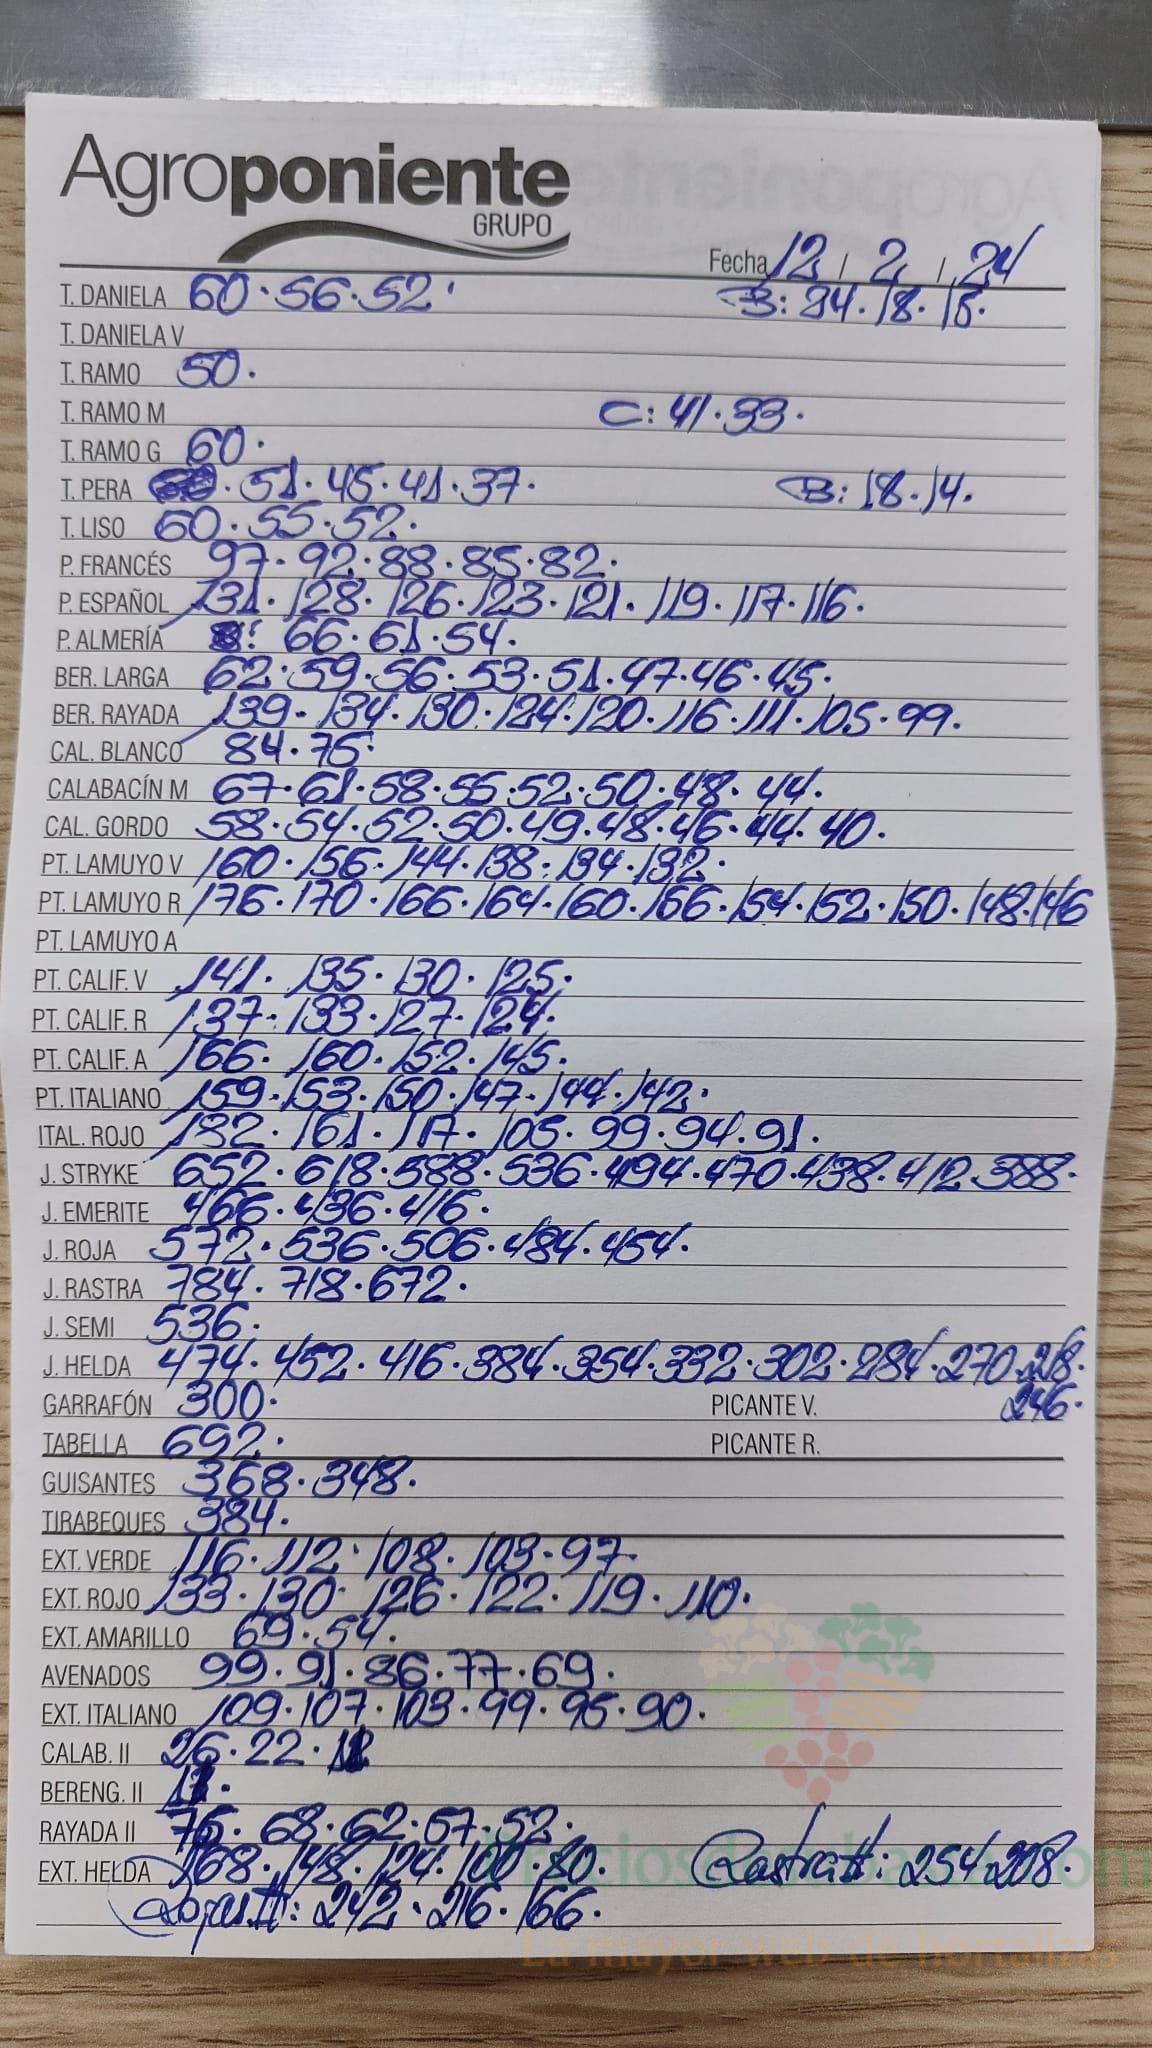 Agroponiente
GRUPO
Fecha 12 / 2 / 24
T. DANIELA 60 · 56 · 52 · B: 24 · 18 · 15 ·
T. DANIELA V
T. RAMO 50 ·
T. RAMO M C: 41 · 33 ·
T. RAMO G 60 ·
T. PERA · 51 · 45 · 41 · 37 · B: 18 · 14 ·
T. LISO 60 · 55 · 52 ·
P. FRANCÉS 97 · 92 · 88 · 85 · 82 ·
P. ESPAÑOL 131 · 128 · 126 · 123 · 121 · 119 · 117 · 116 ·
P. ALMERÍA 66 · 61 · 54 ·
BER. LARGA 62 · 59 · 56 · 53 · 51 · 47 · 46 · 45 ·
BER. RAYADA 139 · 134 · 130 · 124 · 120 · 116 · 111 · 105 · 99 ·
CAL. BLANCO 84 · 75 ·
CALABACÍN M 67 · 61 · 58 · 55 · 52 · 50 · 48 · 44 ·
CAL. GORDO 58 · 54 · 52 · 50 · 49 · 48 · 46 · 44 · 40 ·
PT. LAMUYO V 160 · 156 · 144 · 138 · 134 · 132 ·
PT. LAMUYO R 176 · 170 · 166 · 164 · 160 · 156 · 154 · 152 · 150 · 148 · 146
PT. LAMUYO A
PT. CALIF. V 141 · 135 · 130 · 125 ·
PT. CALIF. R 137 · 133 · 127 · 124 ·
PT. CALIF. A 166 · 160 · 152 · 145 ·
PT. ITALIANO 159 · 153 · 150 · 147 · 144 · 142 ·
ITAL. ROJO 182 · 161 · 117 · 105 · 99 · 94 · 91 ·
J. STRYKE 652 · 618 · 588 · 536 · 494 · 470 · 438 · 412 · 388 ·
J. EMERITE 466 · 436 · 416 ·
J. ROJA 572 · 536 · 506 · 484 · 454 ·
J. RASTRA 784 · 718 · 672 ·
J. SEMI 536 ·
J. HELDA 474 · 452 · 416 · 384 · 354 · 332 · 302 · 284 · 270 ·
GARRAFÓN 300 · PICANTE V. 246 ·
TABELLA 692 · PICANTE R.
GUISANTES 368 · 348 ·
TIRABEQUES 384 ·
EXT. VERDE 116 · 112 · 108 · 103 · 97 ·
EXT. ROJO 133 · 130 · 126 · 122 · 119 · 110 ·
EXT. AMARILLO 69 · 54 ·
AVENADOS 99 · 91 · 86 · 77 · 69 ·
EXT. ITALIANO 109 · 107 · 103 · 99 · 95 · 90 ·
CALAB. II 26 · 22 ·
BERENG. II
RAYADA II 76 · 68 · 62 · 57 · 52 ·
EXT. HELDA 168 · 148 · 124 · 100 · 80 · Rastra II: 254 · 208 ·
Rojas II: 242 · 216 · 166 ·
La mayor web de hortalizas